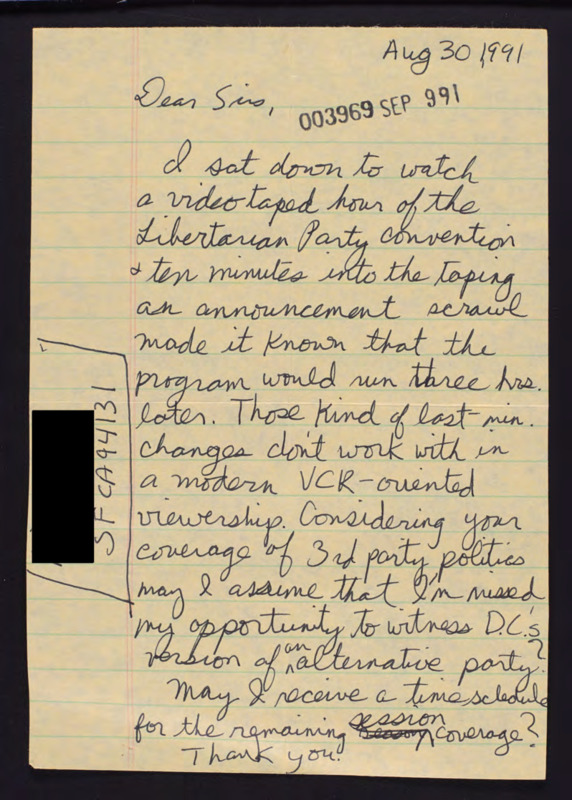 Aug 30 1991
Dear Sirs,
003969 SEP 991
I sat down to watch
a videotaped hour of the
Libertarian Party convention
& ten minutes into the taping
an announcement scrawl
made it known that the
program would run three hrs.
later. Those kind of last-min.
changes don't work with in
a modern VCR-oriented
viewership. Considering your
coverage of 3rd party politics
may I assume that I'm missed
my opportunity to witness D.C.'s
version of an alternative party?
May I receive a time schedule
for the remaining session coverage?
Thank you.
SF CA 94131